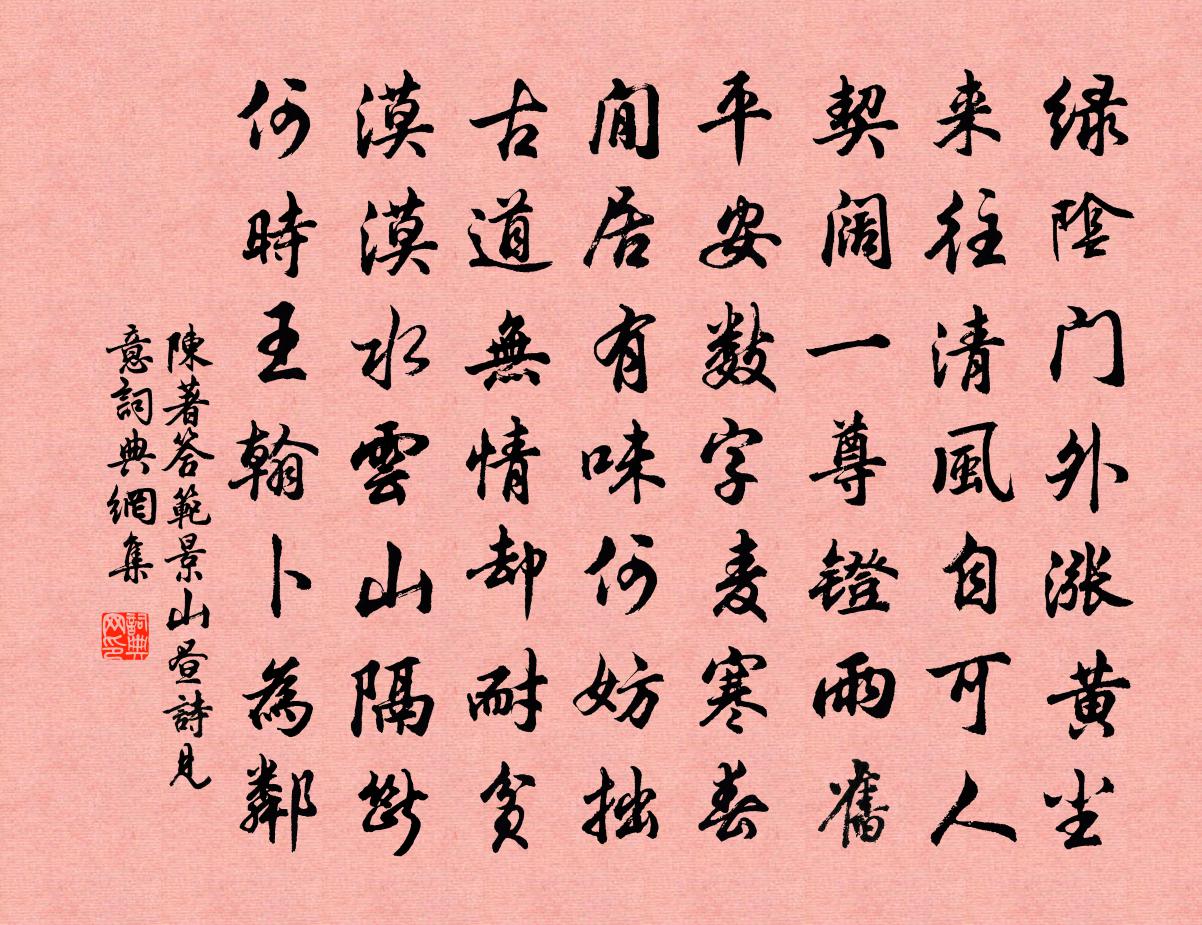 绿陰门外漲黄尘
来往清風自可人
契阔一尊鐙雨舊
平安数字麦寒春
閒居有味何妨拙
古道無情却耐貧
漠漠水雲山隔斷
何時王翰卜為鄰
陳著答範景山晝詩見
意詞典網集
詞典网印